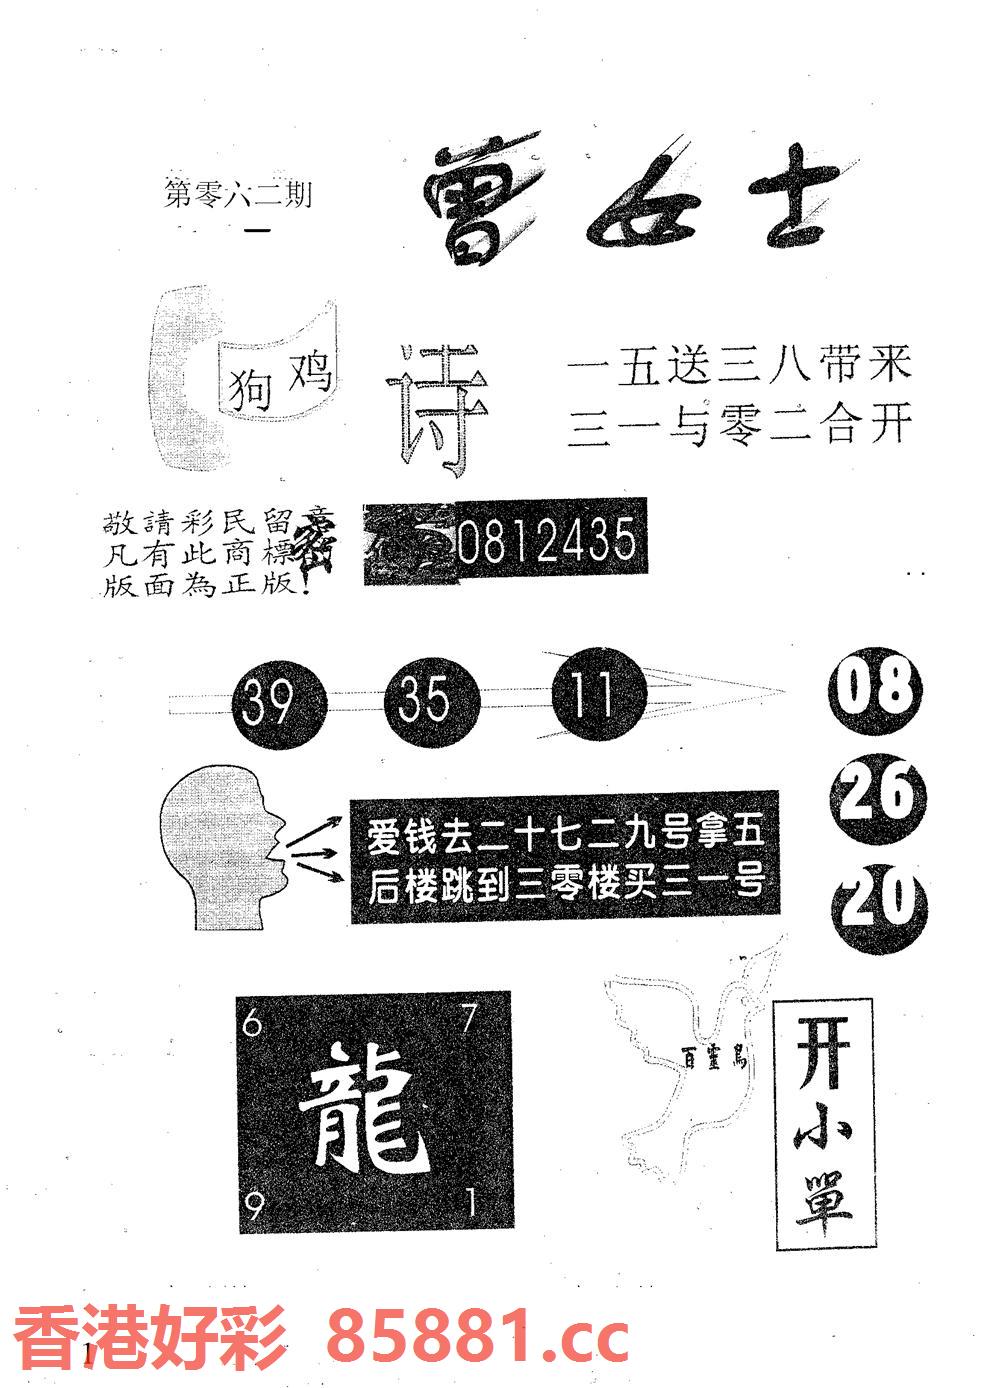 曾女士
第零六二期
狗 鸡
诗
一五送三八带来
三一与零二合开
敬請彩民留意
凡有此商標
版面為正版!
密
0812435
39 35 11
08
26
20
爱钱去二十七二九号拿五
后楼跳到三零楼买三一号
6 7
龍
9 1
百靈鳥
开小單
香港好彩 85881.cc
1